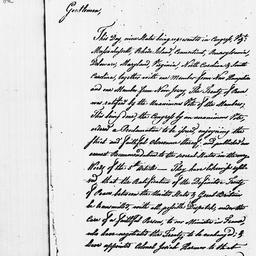 Gentlemen,
This Day nine States being represented in Congress Viz
Massachusetts Rhode Island, Connecticut, Pennsylvania,
Delaware, Maryland, Virginia, North Carolina & South
Carolina, together with one Member from New Hampshire
and one Member from New Jersey. The Treaty of Peace
was ratified by the unanimous Vote of the Members,
This being done, the Congress by an unanimous Vote,
ordered a Proclamation to be issued, enjoining the
strict and faithful observance thereof, and published an
earnest Recommendation to the several States in the very
Words of the 5th Article — They have likewise
ordered, that the Ratification of the Definitive Treaty
of Peace between the United States & Great Britain
be transmitted, with all possible Dispatch, under the
Care of a faithful Person, to our Ministers in France,
who have negotiated the Treaty, to be exchanged; &
have appointed Colonel Josiah Harmar to that